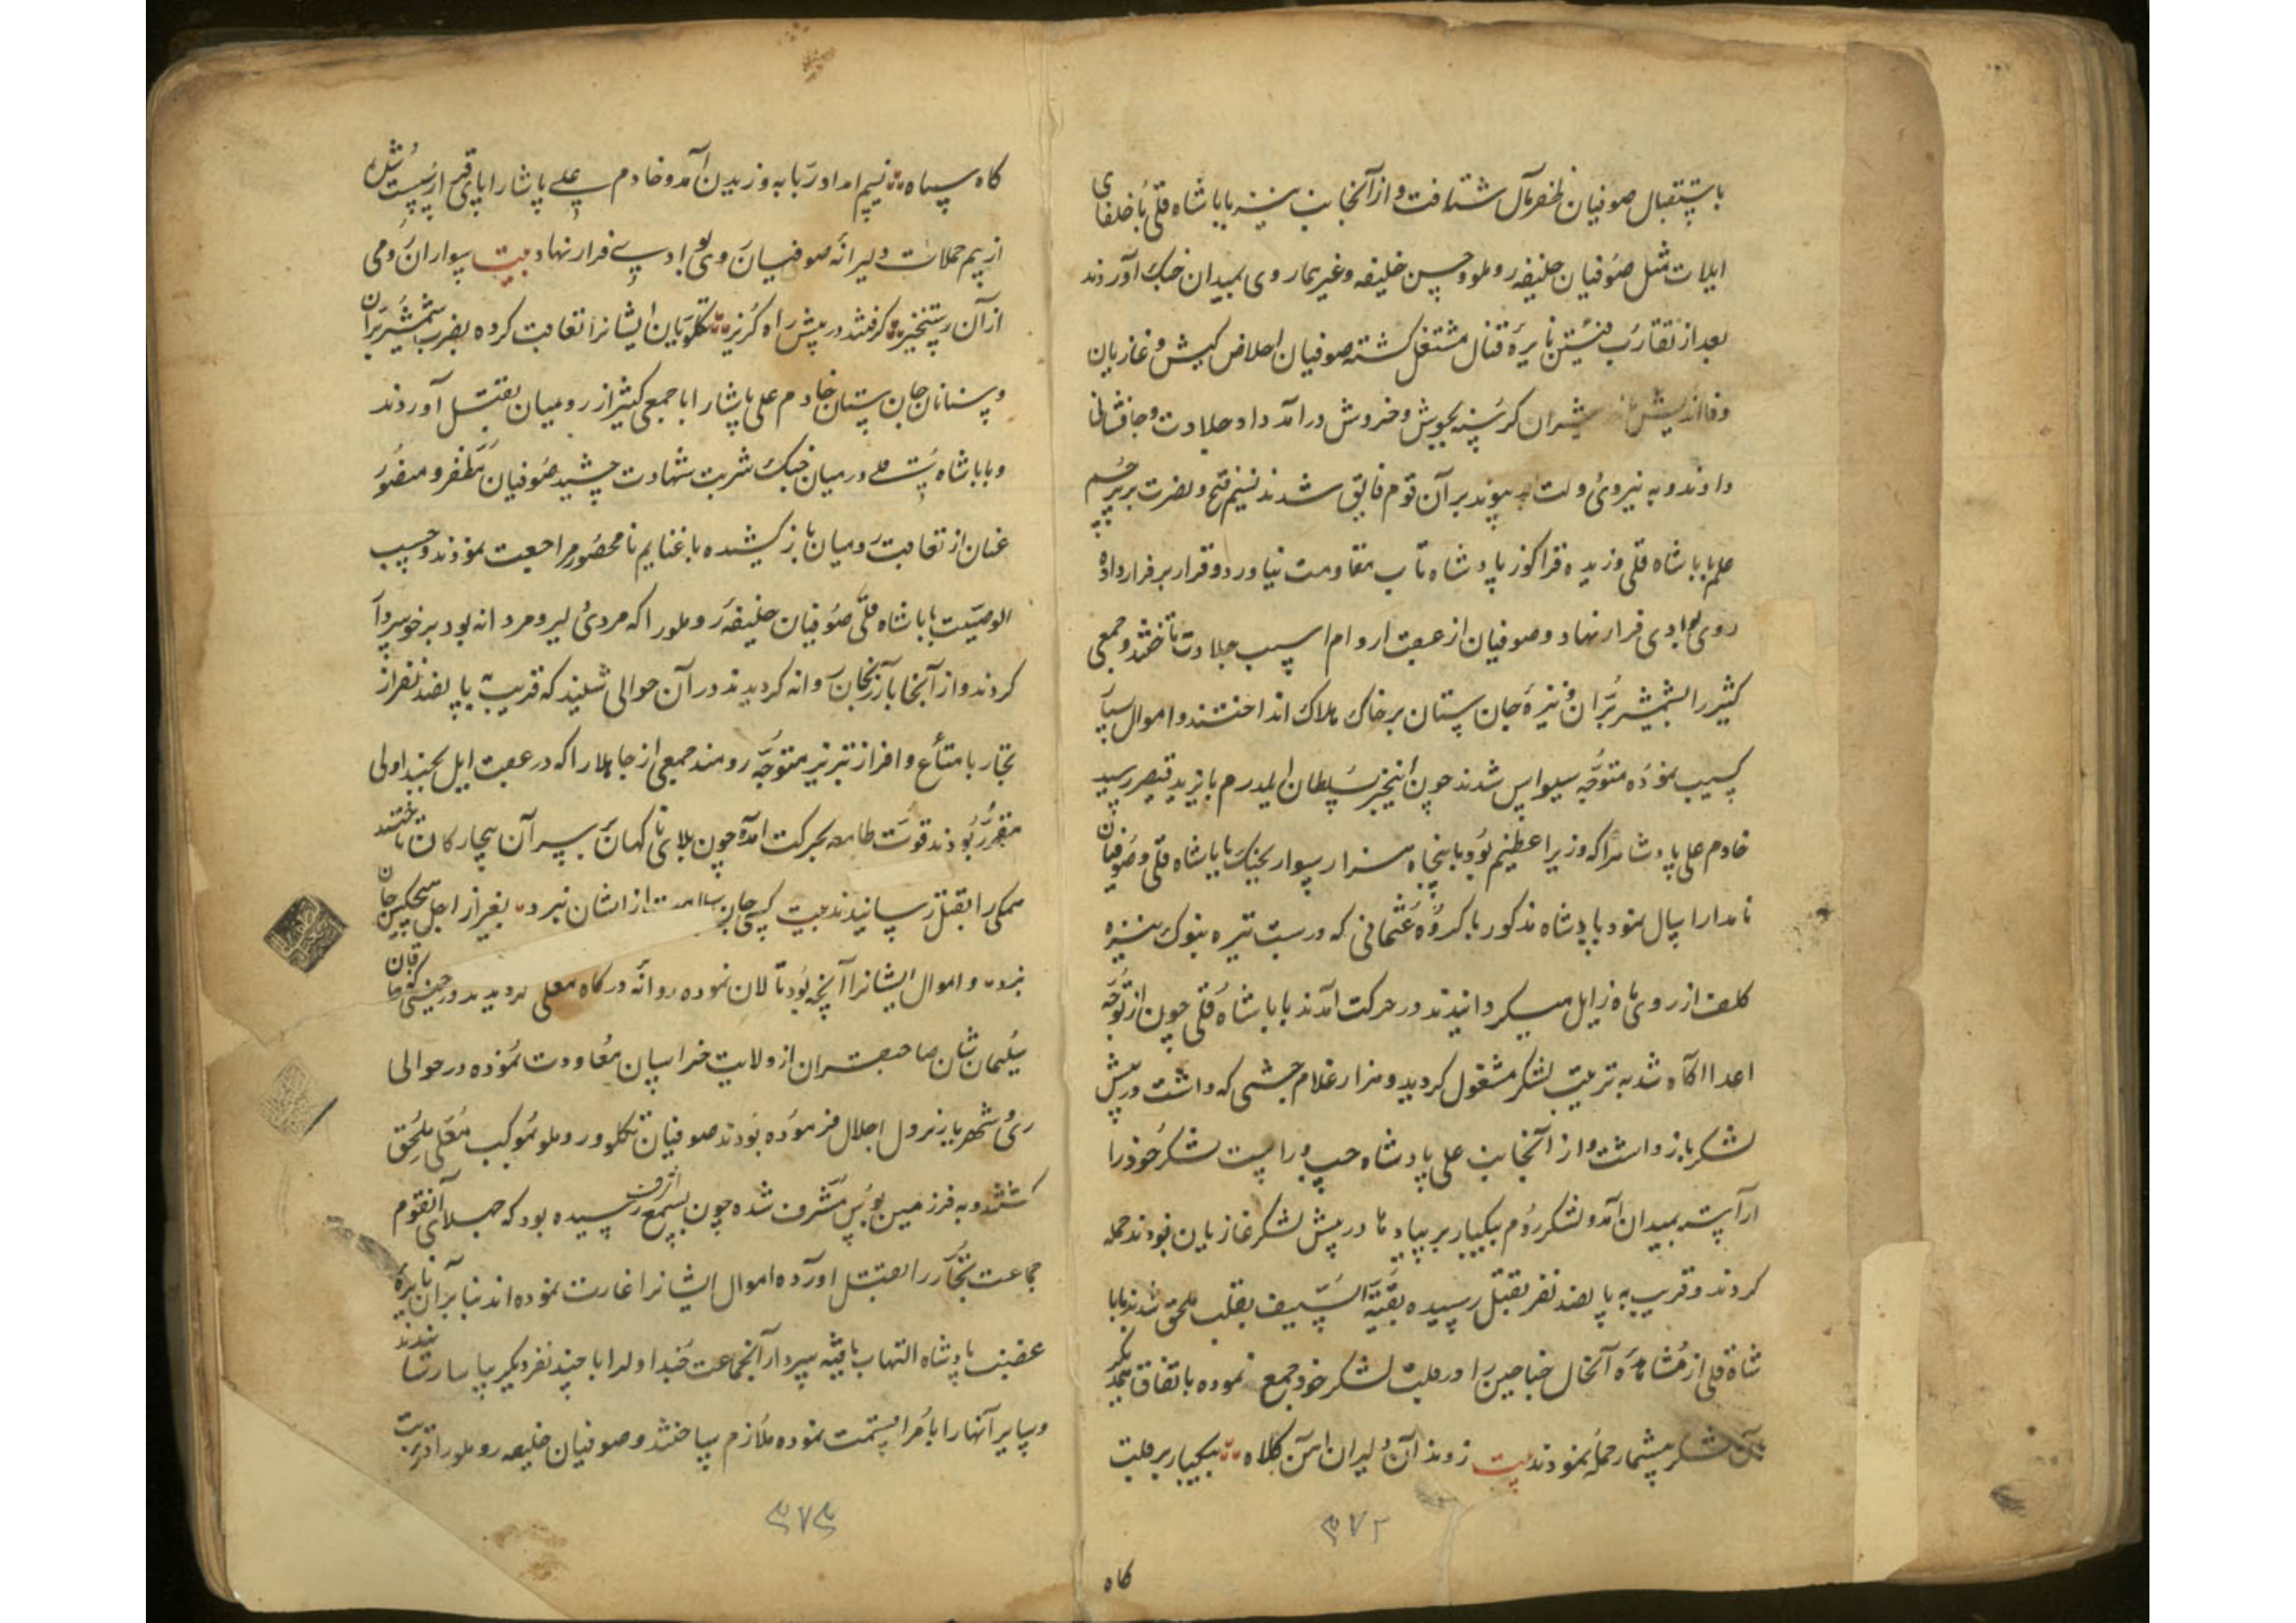 باستقبال صوفیان ظفر مآل شتافت و از آنجانب نیز بابا شاه قلی با خلفای
ایلات مثل صوفیان خلیفه روملو و حسن خلیفه و غیرهما روی بمیدان جنک آوردند
بعد از تقارب فئتین نایره قتال مشتعل کشته صوفیان اخلاص کیش و غازیان
وفا اندیش شیران کرسنه بجوش و خروش درآمد داد جلادت و جانفشانی
دادند و به نیروی دولت پیوند بر آن قوم فایق شدند نسیم فتح و نصرت بر پرچم
علم بابا شاه قلی وزیده قراکوز پادشاه تاب مقاومت نیاورد و قرار بر فرار داده
روی بوادی فرار نهاد و صوفیان از عقب اروام اسب جلادت تاختند و جمعی
کثیر را بشمشیر بران و نیزه جان ستان بر خاک هلاک انداختند و اموال
کسیب نموده متوجه سیواس شدند چون اینخبر بسلطان ایلدرم بایزید قیصر رسید
خادم علی پادشاه را که وزیر اعظیم بود با پنجاه هزار سوار بجنک بابا شاه قلی و صوفیان
نامدار ارسال نمود پادشاه مذکور با کروه عثمانی که در شب تیره بنوک نیزه
کلف از روی ماه زایل میکردانیدند در حرکت آمدند بابا شاه قلی چون از توجه
اعدا آکاه شد به ترتیب لشکر مشغول کردید و هزار غلام حبشی که داشت در پیش
لشکر بازداشت و از آنجانب علی پادشاه چپ و راست لشکر خود را
آراسته بمیدان آمد و لشکر روم بیکبار بر پیادها در پیش لشکر غازیان بودند حمله
کردند و قریب به پانصد نفر بقتل رسیده بقیة السیف بقلب ملحق شدند بابا
شاه قلی از مشاهده آنحال جناحین را در قلب لشکر خود جمع نموده باتفاق یکدیکر
بآن لشکر بیشمار حمله نمودند بیت زدند آن دلیران آهن کلاه بیکبار بر قلب
کاه
۳۷۲
کاه سپاه نسیم امداد ربانیه وزیدن آمد و خادم علی پاشا را پای قرار از پیش
از بیم حملات دلیرانه صوفیان روی بوادی فرار نهاد بیت سواران رومی
از آن رستخیز کرفتند در پیش راه کریز تکلویان ایشانرا تعاقب کرده بضرب شمشیر بران
و سنان جان ستان خادم علی پاشا را با جمعی کثیر از رومیان بقتل آوردند
و بابا شاه قلی در میان جنک شربت شهادت چشید صوفیان مظفر و منصور
عنان از تعاقب رومیان باز کشیده با غنایم نامحصور مراجعت نمودند و حسب
الوصیت بابا شاه قلی صوفیان خلیفه روملو را که مردی دلیر و مردانه بود بر خود سردار
کردند و از آنجا بارزنجان روانه کردیدند در آن حوالی شنیدند که قریب به پانصد نفر از
تجار با متاع وافر از تبریز متوجه رومند جمعی از جاهلان را که در عقب ایل بجنداولی
مقرر بودند قوت طامعه بحرکت آمده چون بلای ناکهان بر سر آن بیچارکان تاختند
همکی را بقتل رسانیدند بیت کسی جان سلامت از ایشان نبرد بغیر از اجل هیچکس جان
نبرد و اموال ایشانرا آنچه بود تالان نموده روانه درکاه معلی کردیدند در حینی که خاقان
سلیمان شان صاحبقران از ولایت خراسان معاودت نموده در حوالی
ری شهریار نزول اجلال فرموده بودند صوفیان تکلو و روملو بموکب معلی ملحق
کشتند و به فرز مین بوس مشرف شده چون بسمع اشرف رسیده بود که جهلای آنقوم
جماعت تجار را بقتل آورده اموال ایشانرا غارت نموده اند بنابرآن نایره
غضب پادشاه التهاب یافته سردار آنجماعت جنداولرا با چند نفر دیکر بیاسا رسانیدند
و سایر آنها را با مرا قسمت نموده ملازم ساختند و صوفیان خلیفه روملو را تربیت
۳۷۳